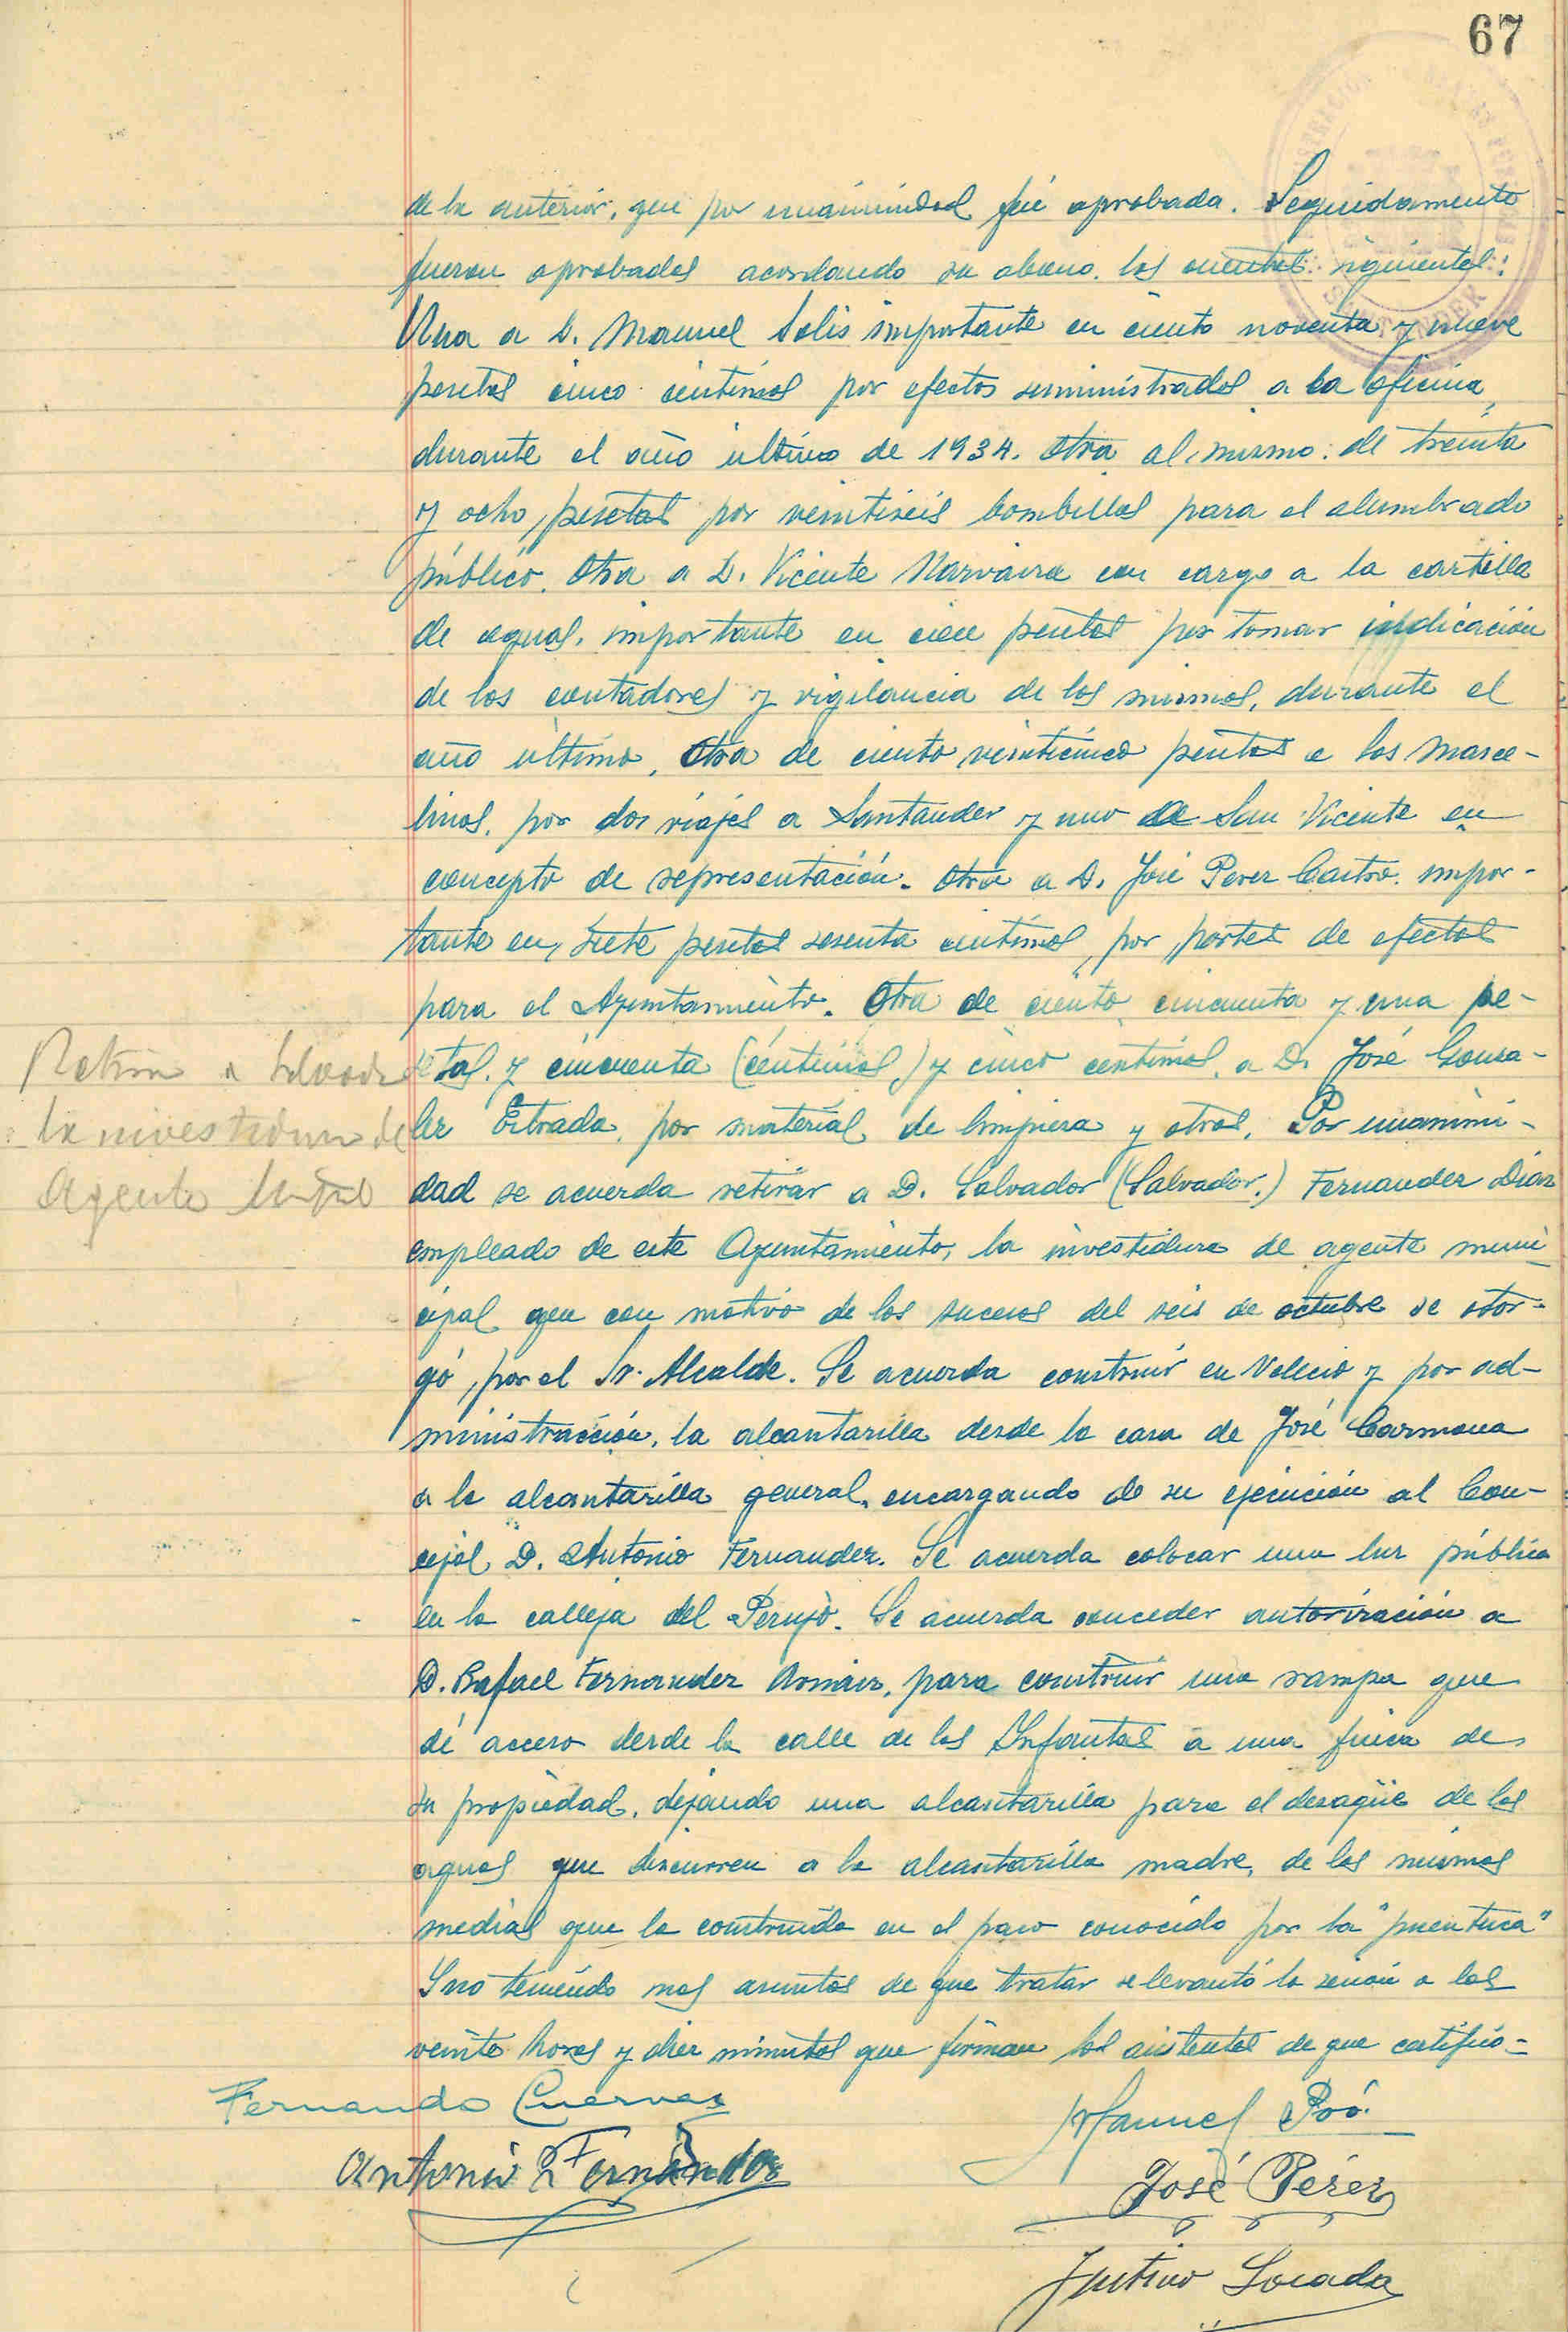 67
de la anterior, que por unanimidad fué aprobada. Seguidamente
fueron aprobadas acordando su abono. las cuentas siguientes:
Una a D. Manuel Solis importante en ciento noventa y nueve
pesetas cinco centimos por efectos suministrados a la oficina,
durante el año ultimo de 1934. Otra al mismo de treinta
y ocho pesetas por veintiseis bombillas para el alumbrado
público. Otra a D. Vicente con cargo a la cartilla
de aguas, importante en cien pesetas por tomar indicación
de los contadores y vigilancia de los mismos, durante el
año ultimo. Otra de ciento veinticinco pesetas a los Marce-
linos, por dos viajes a Santander y uno de San Vicente en
concepto de representación. Otra a D. José Perez Castro. impor-
tante en, siete pesetas sesenta centimos, por portes de efectos
para el Ayuntamiento. Otra de ciento cincuenta y una pe-
setas. y cincuenta (céntimos) y cinco centimos, a D. José Gonza-
lez Estrada, por material de limpieza y otros. Por unanimi-
dad se acuerda retirar a D. Salvador (Salvador.) Fernandez Diaz
empleado de este Ayuntamiento, la investidura de agente muni-
cipal que con motivo de los sucesos del seis de octubre se otor-
gó, por el Sr. Alcalde. Se acuerda construir en Vellecio y por ad-
ministración, la alcantarilla desde la casa de José Carmona
a la alcantarilla general, encargando de su ejecución al Con-
cejal D. Antonio Fernandez. Se acuerda colocar una luz pública
en la calleja del Perujo. Se acuerda conceder autorización a
D. Rafael Fernandez Arnaiz, para construir una rampa que
dé acceso desde la calle de las Infantas a una finca de
su propiedad, dejando una alcantarilla para el desagüe de las
aguas que discurren a la alcantarilla madre, de las mismas
medias que la construida en el paso conocido por la "puentuca"
Y no teniendo mas asuntos de que tratar se levantó la sesión a las
veinte horas y diez minutos que firman los asistentes de que certifico=
Retira a Salvador
la investidura de
Agente Mpal
Fernando Cuervas
Manuel Poó.
Antonio Fernandez
José Pérez
Justino Losada